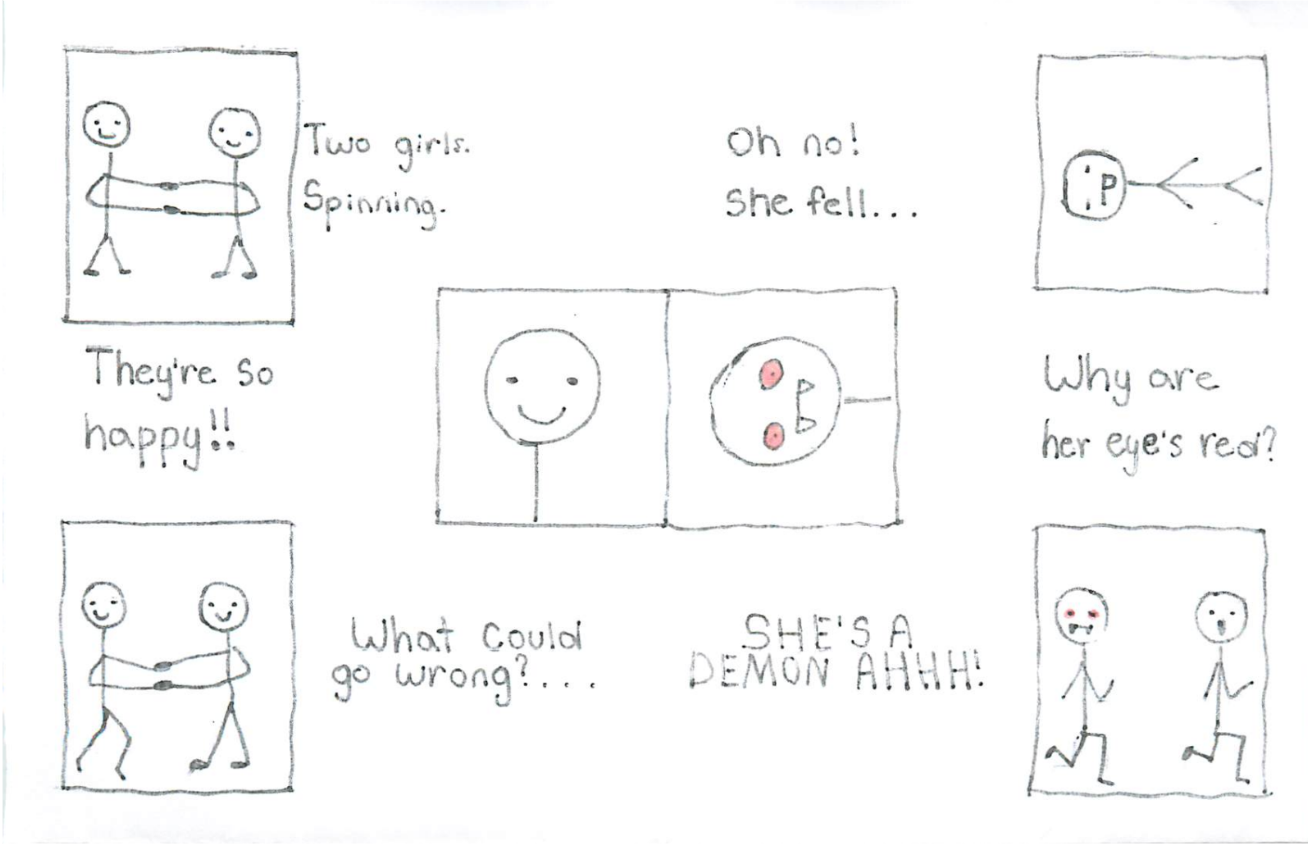 Two girls.
Spinning.
They're so
happy!!
What could
go wrong?....
Oh no!
She fell...
Why are
her eye's red?
SHE'S A
DEMON AHHH!